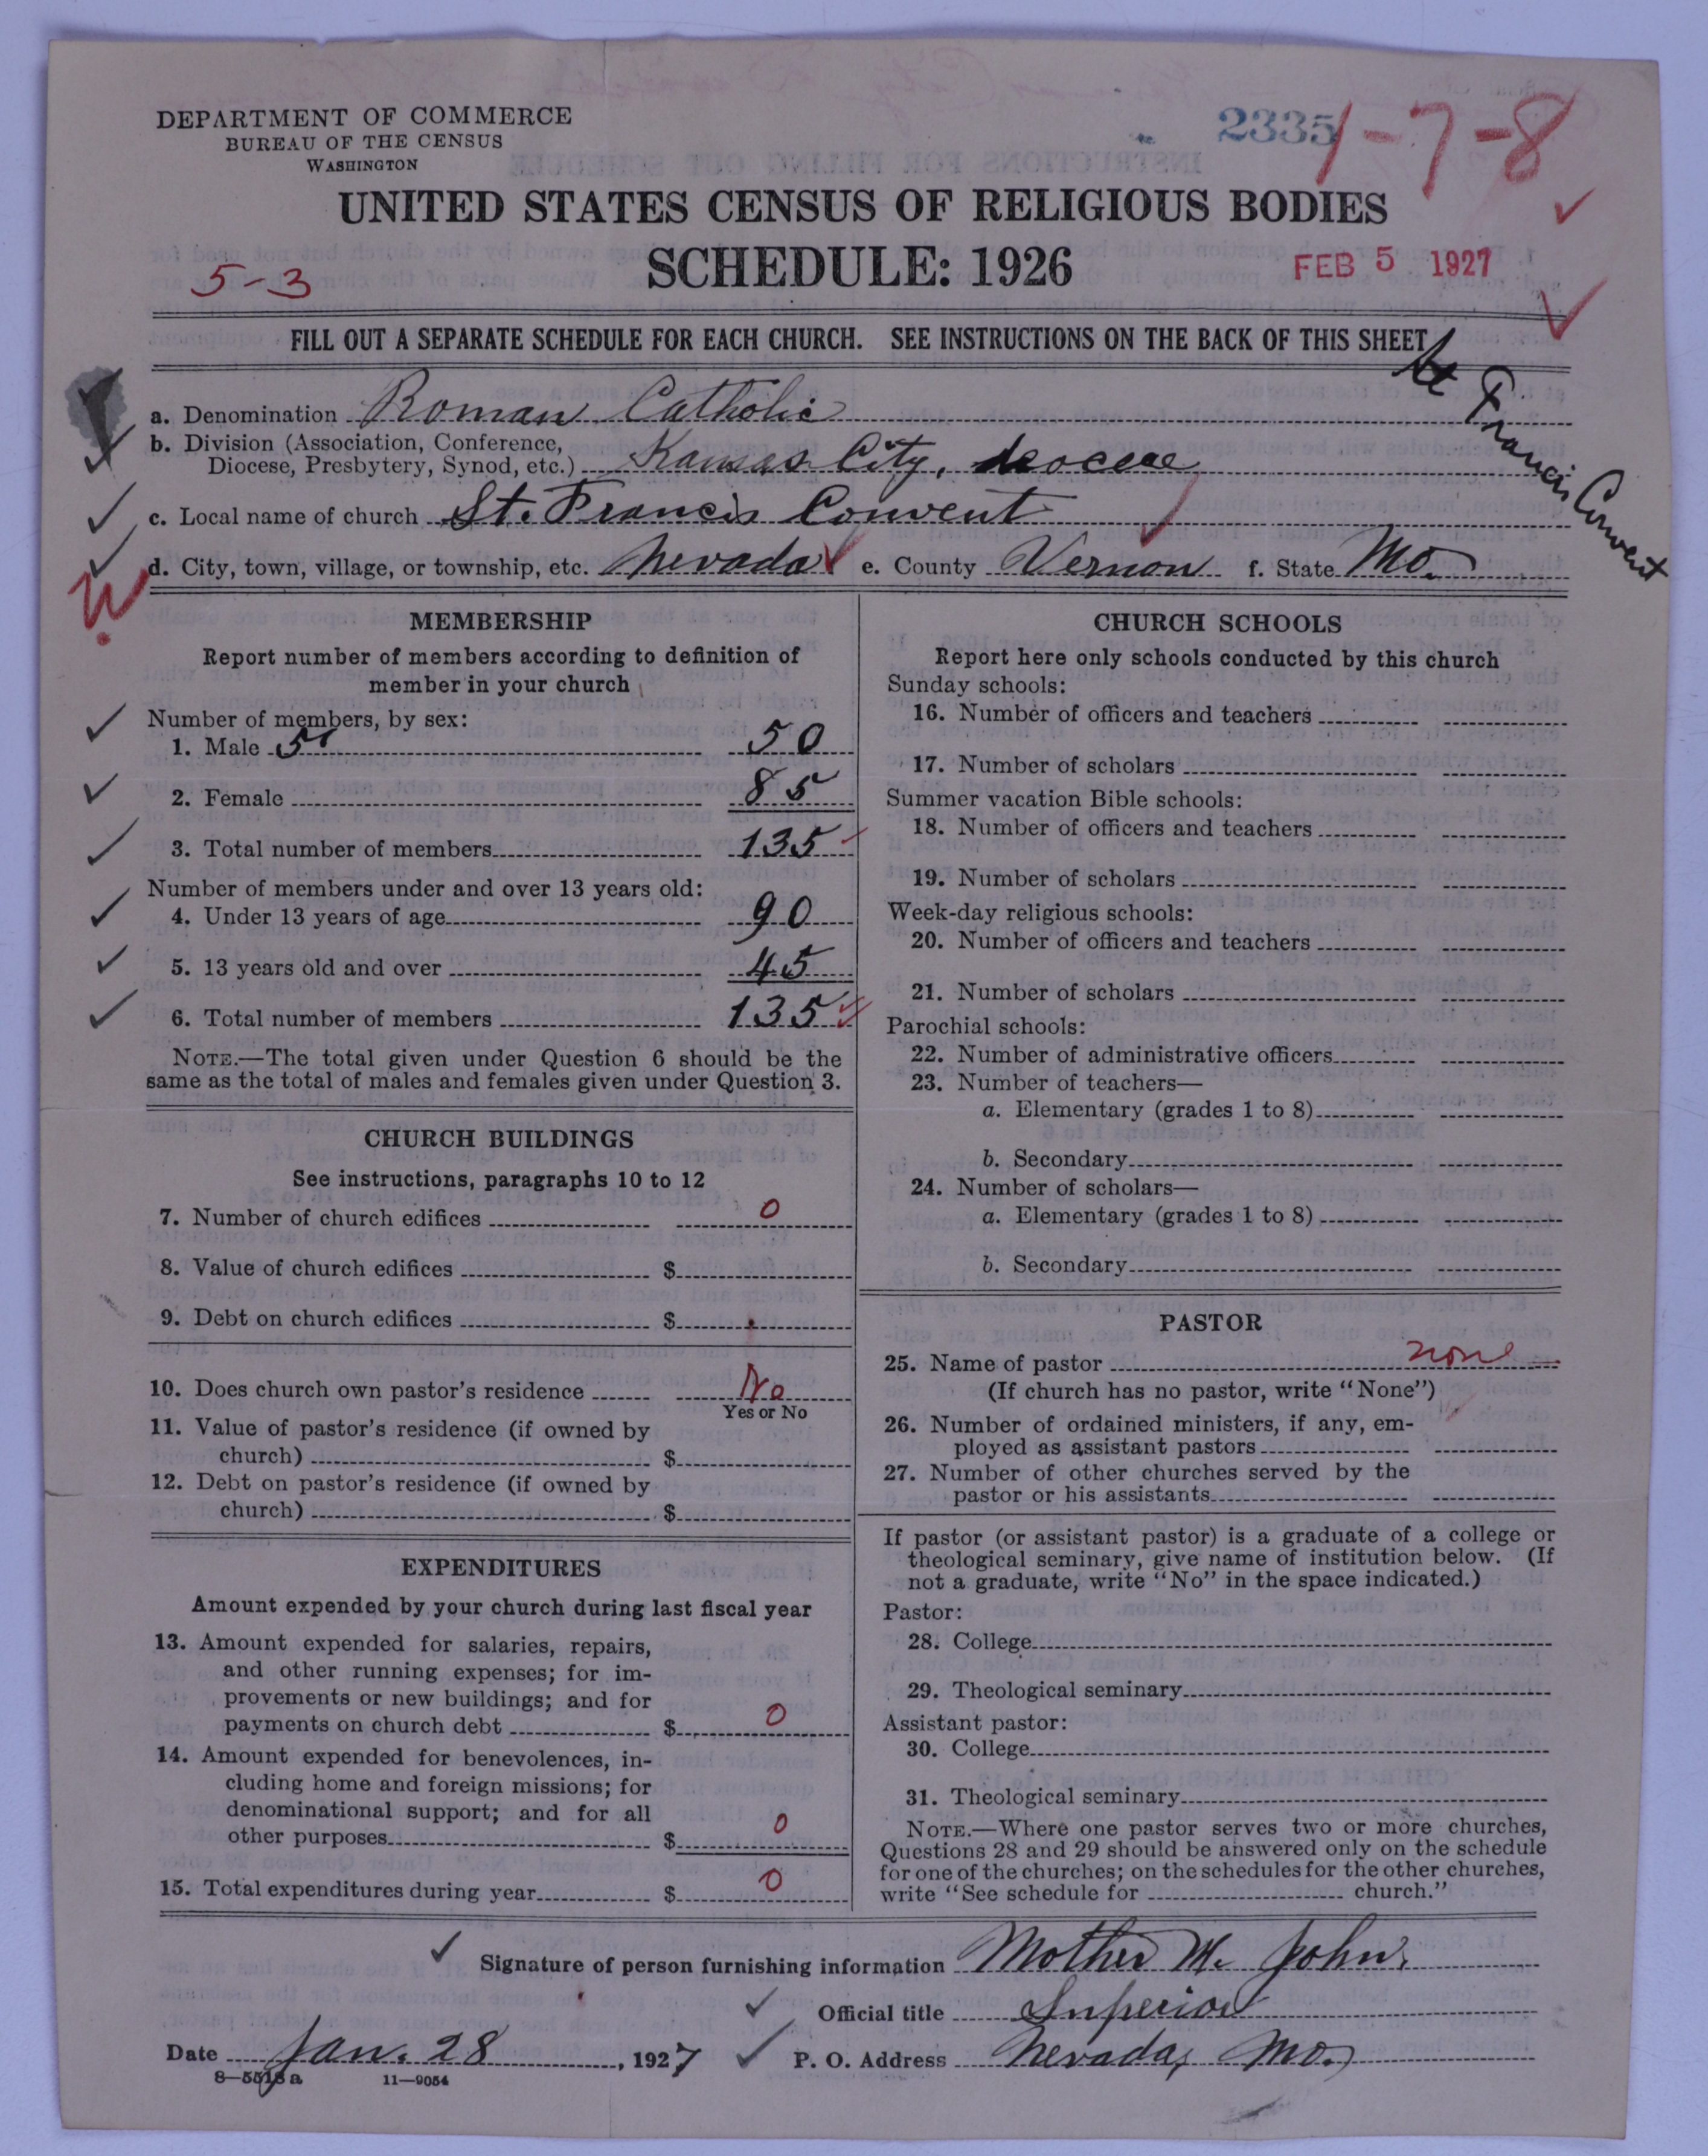 DEPARTMENT OF COMMERCE
BUREAU OF THE CENSUS
WASHINGTON
2335
1-7-8
UNITED STATES CENSUS OF RELIGIOUS BODIES
SCHEDULE: 1926
5-3
FEB 5 1927
FILL OUT A SEPARATE SCHEDULE FOR EACH CHURCH. SEE INSTRUCTIONS ON THE BACK OF THIS SHEET
St Francis Convent
a. Denomination Roman Catholic
b. Division (Association, Conference,
Diocese, Presbytery, Synod, etc.) Kansas City, deocese
c. Local name of church St. Francis Convent
d. City, town, village, or township, etc. Nevada e. County Vernon f. State Mo.
MEMBERSHIP
Report number of members according to definition of
member in your church
Number of members, by sex:
1. Male 50 50
2. Female 85
3. Total number of members 135
Number of members under and over 13 years old:
4. Under 13 years of age 90
5. 13 years old and over 45
6. Total number of members 135
NOTE.—The total given under Question 6 should be the
same as the total of males and females given under Question 3.
CHURCH BUILDINGS
See instructions, paragraphs 10 to 12
7. Number of church edifices 0
8. Value of church edifices $
9. Debt on church edifices $
10. Does church own pastor's residence No
Yes or No
11. Value of pastor's residence (if owned by
church) $
12. Debt on pastor's residence (if owned by
church) $
EXPENDITURES
Amount expended by your church during last fiscal year
13. Amount expended for salaries, repairs,
and other running expenses; for im-
provements or new buildings; and for
payments on church debt $ 0
14. Amount expended for benevolences, in-
cluding home and foreign missions; for
denominational support; and for all
other purposes $ 0
15. Total expenditures during year $ 0
CHURCH SCHOOLS
Report here only schools conducted by this church
Sunday schools:
16. Number of officers and teachers
17. Number of scholars
Summer vacation Bible schools:
18. Number of officers and teachers
19. Number of scholars
Week-day religious schools:
20. Number of officers and teachers
21. Number of scholars
Parochial schools:
22. Number of administrative officers
23. Number of teachers—
a. Elementary (grades 1 to 8)
b. Secondary
24. Number of scholars—
a. Elementary (grades 1 to 8)
b. Secondary
PASTOR
25. Name of pastor none
(If church has no pastor, write "None")
26. Number of ordained ministers, if any, em-
ployed as assistant pastors
27. Number of other churches served by the
pastor or his assistants
If pastor (or assistant pastor) is a graduate of a college or
theological seminary, give name of institution below. (If
not a graduate, write "No" in the space indicated.)
Pastor:
28. College
29. Theological seminary
Assistant pastor:
30. College
31. Theological seminary
NOTE.—Where one pastor serves two or more churches,
Questions 28 and 29 should be answered only on the schedule
for one of the churches; on the schedules for the other churches,
write "See schedule for church."
Signature of person furnishing information Mother M. John.
Official title Superior
Date Jan. 28, 1927 P. O. Address Nevada, Mo.
8—5518a 11—9054